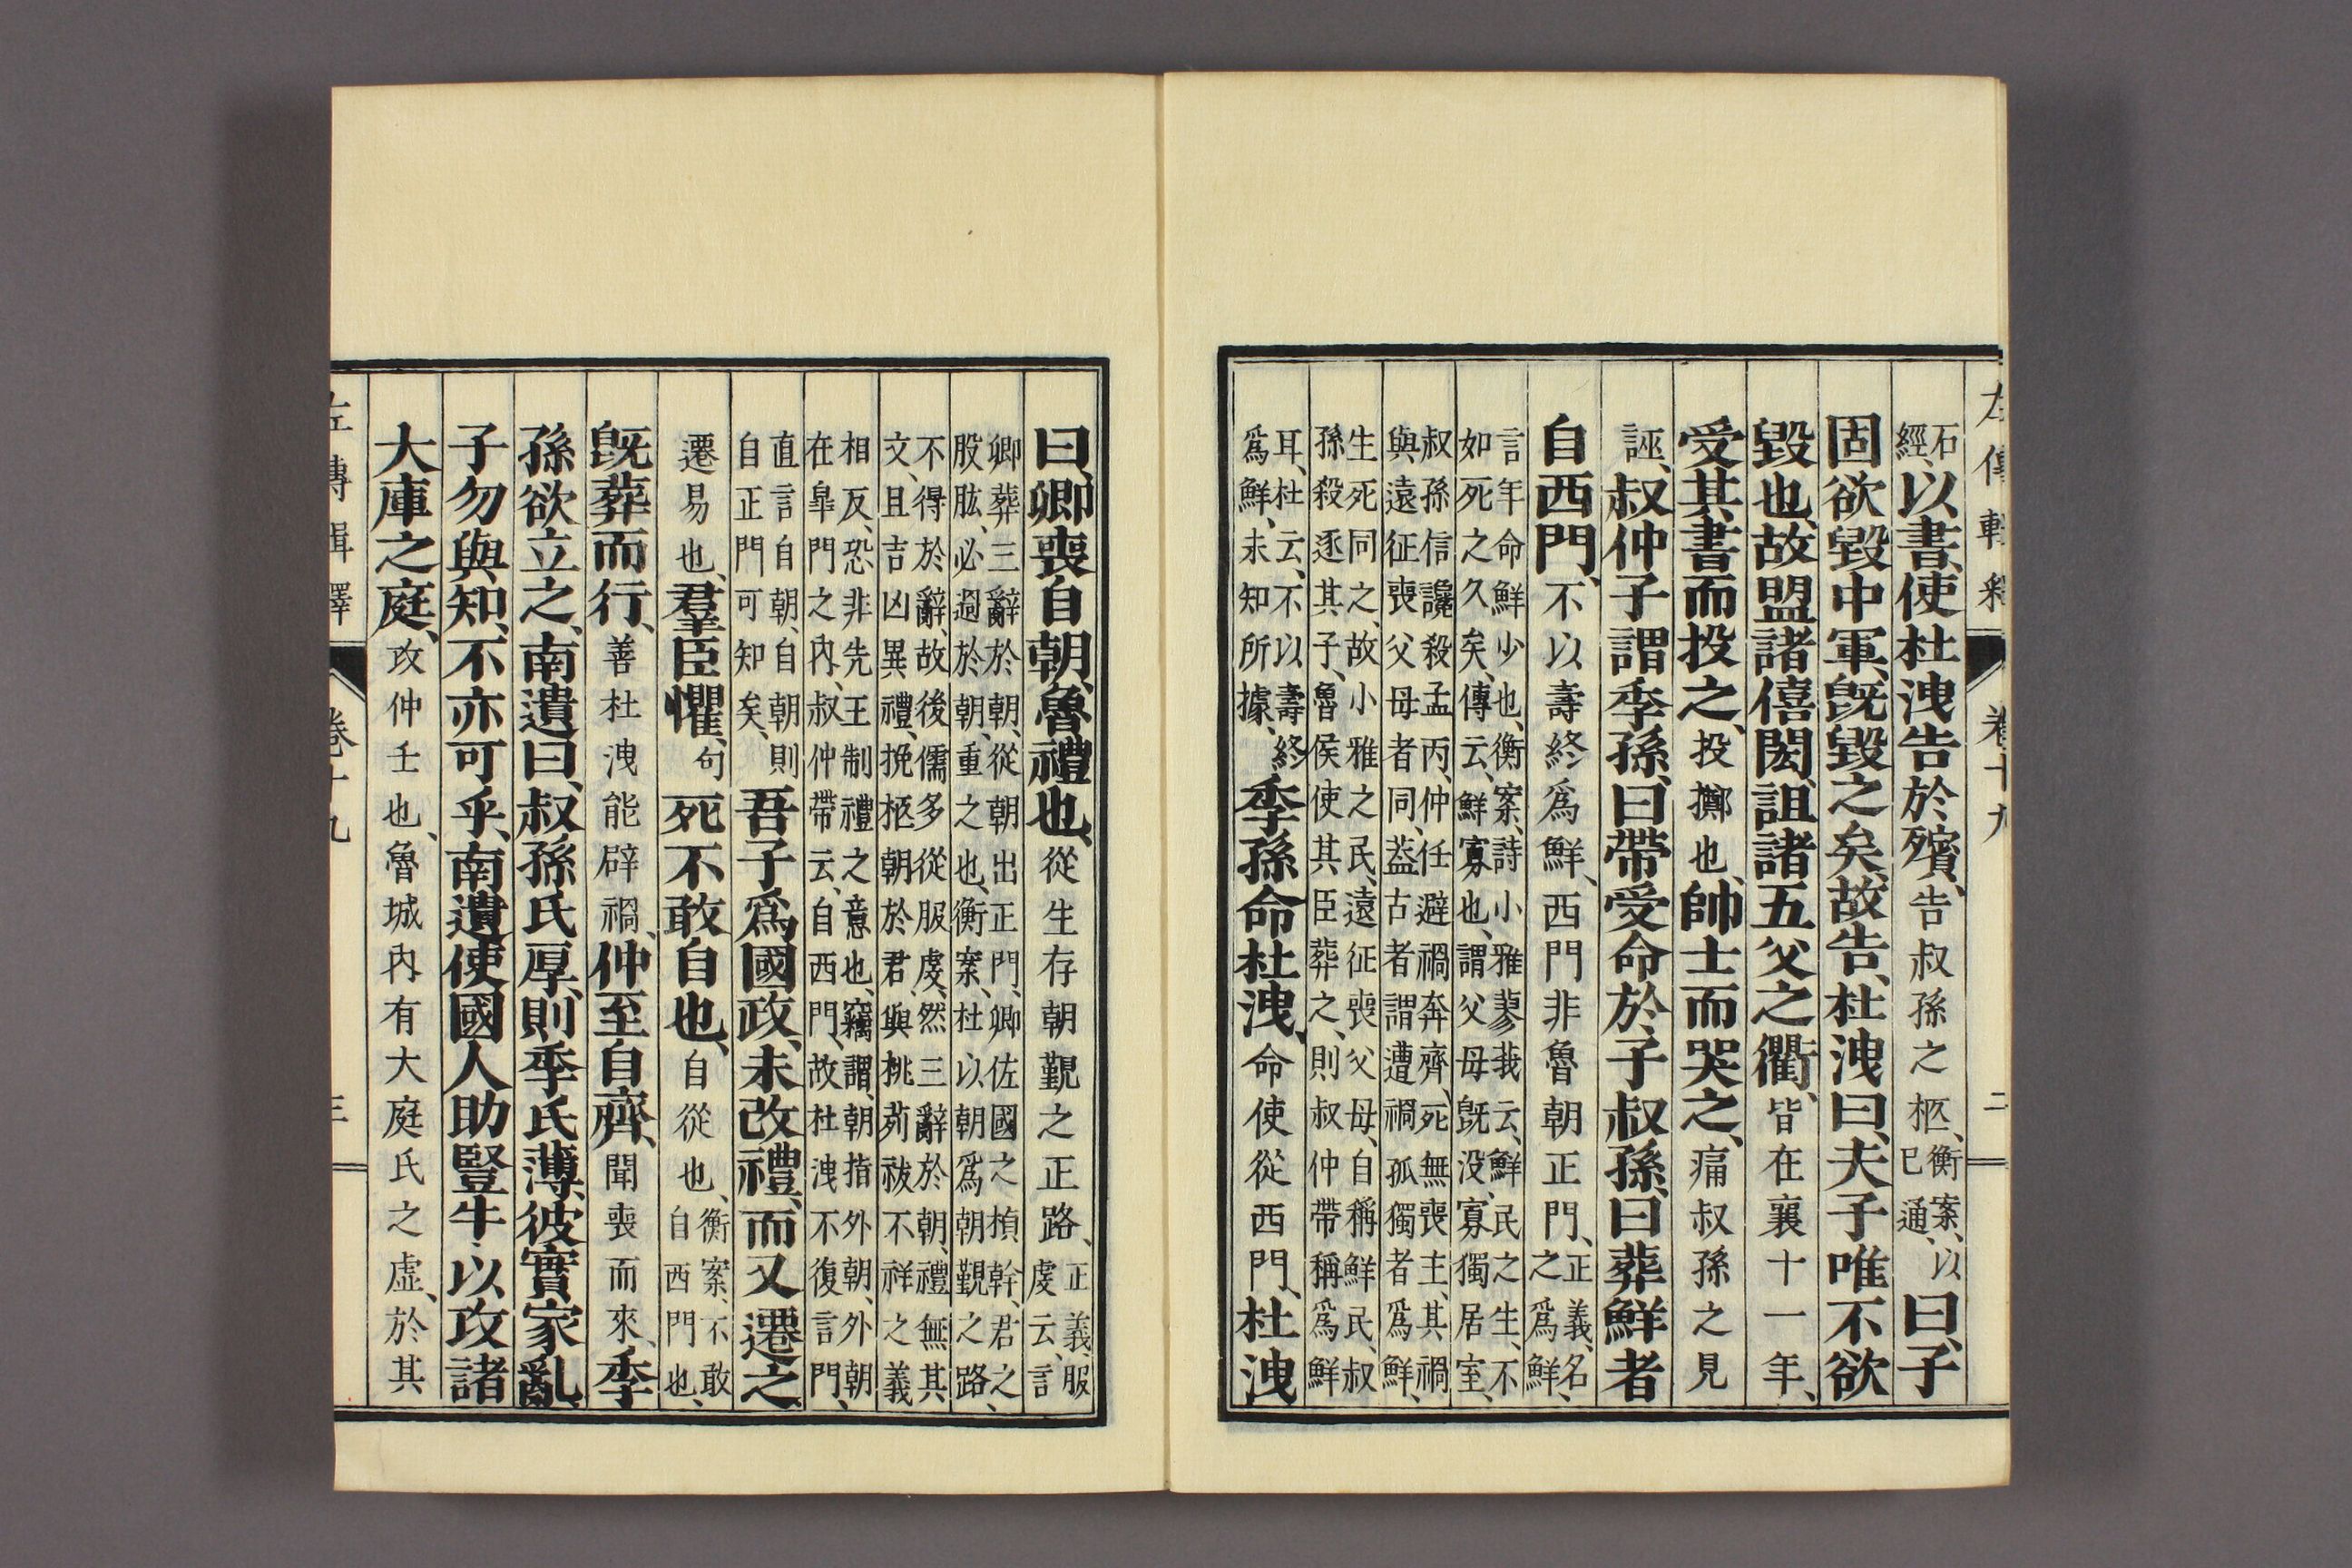 左傳輯釋 卷十九 二
石經、以書使杜洩告於殯、告叔孫之柩、衡案、以已通、曰、子
固欲毀中軍、旣毀之矣、故告、杜洩曰、夫子唯不欲
毀也、故盟諸僖閎、詛諸五父之衢、皆在襄十一年、
受其書而投之、投擲也、帥士而哭之、痛叔孫之見
誣、叔仲子謂季孫、曰帶受命於子叔孫、曰葬鮮者
自西門、不以壽終爲鮮、西門非魯朝正門、正義、名之爲鮮、
言年命鮮少也、衡案、詩小雅蓼莪云、鮮民之生、不
如死之久矣、傳云、鮮寡也、謂父母旣没寡獨居室、
叔孫信讒殺孟丙、仲任避禍奔齊、死無喪主、其禍
與遠征喪父母者同、葢古者謂遭禍孤獨者爲鮮、
生死同之、故小雅之民、遠征喪父母、自稱鮮民、叔
孫殺逐其子、魯侯使其臣葬之、則叔仲帶稱爲鮮
耳、杜云、不以壽終爲鮮、未知所據、季孫命杜洩、命使從西門、杜洩
曰、卿喪自朝、魯禮也、從生存朝覲之正路、正義、服虔云、言
卿葬三辭於朝、從朝出正門、卿佐國之楨幹、君之
股肱、必過於朝、重之也、衡案、杜以朝爲朝覲之路、
不得於辭、故後儒多從服虔、然三辭於朝、禮無其
文、且吉凶異禮、挽柩朝於君、與桃茢祓不祥之義
相反、恐非先王制禮之意也、竊謂、朝指外朝、外朝
在皐門之内、叔仲帶云、自西門、故杜洩不復言門、
直言自朝、自朝則自正門可知矣、吾子爲國政、未改禮、而又遷之、
遷易也、羣臣懼、句死不敢自也、自從也、衡案、不敢自西門也、
旣葬而行、善杜洩能辟禍、仲至自齊、聞喪而來、季
孫欲立之、南遺曰、叔孫氏厚、則季氏薄、彼實家亂、
子勿與知、不亦可乎、南遺使國人助豎牛、以攻諸
大庫之庭、攻仲壬也、魯城内有大庭氏之虛、於其
左傳輯釋 卷十九 三